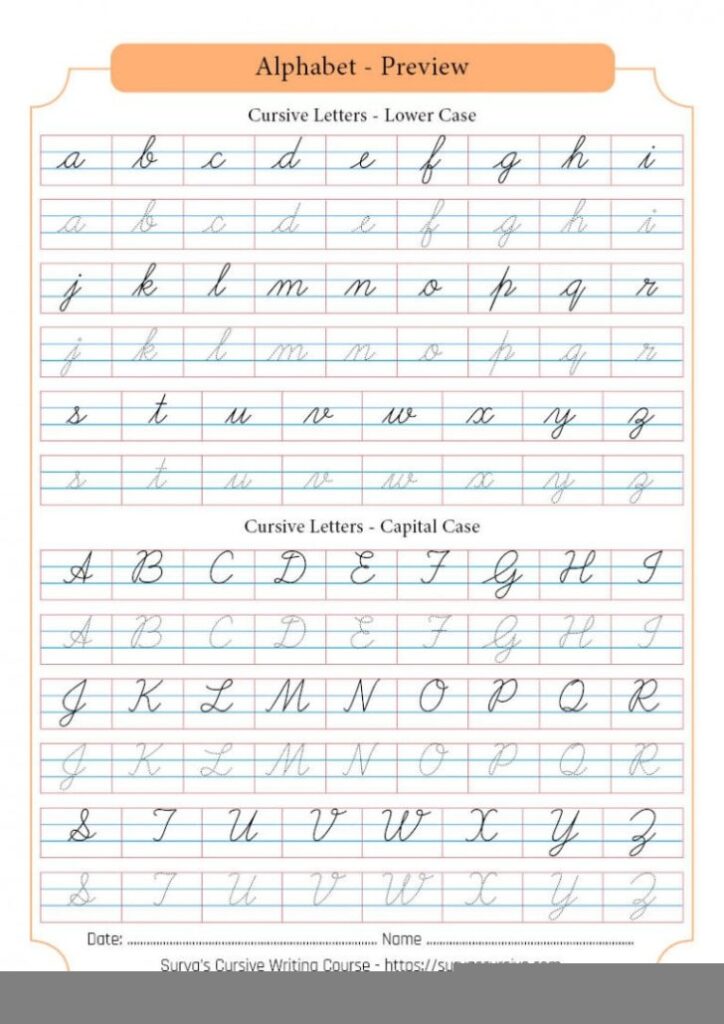 Alphabet - Preview
Cursive Letters - Lower Case
a b c d e f g h i
a b c d e f g h i
j k l m n o p q r
j k l m n o p q r
s t u v w x y z
s t u v w x y z
Cursive Letters - Capital Case
A B C D E F G H I
A B C D E F G H I
J K L M N O P Q R
J K L M N O P Q R
S T U V W X Y Z
S T U V W X Y Z
Date: Name
Surya's Cursive Writing Course -